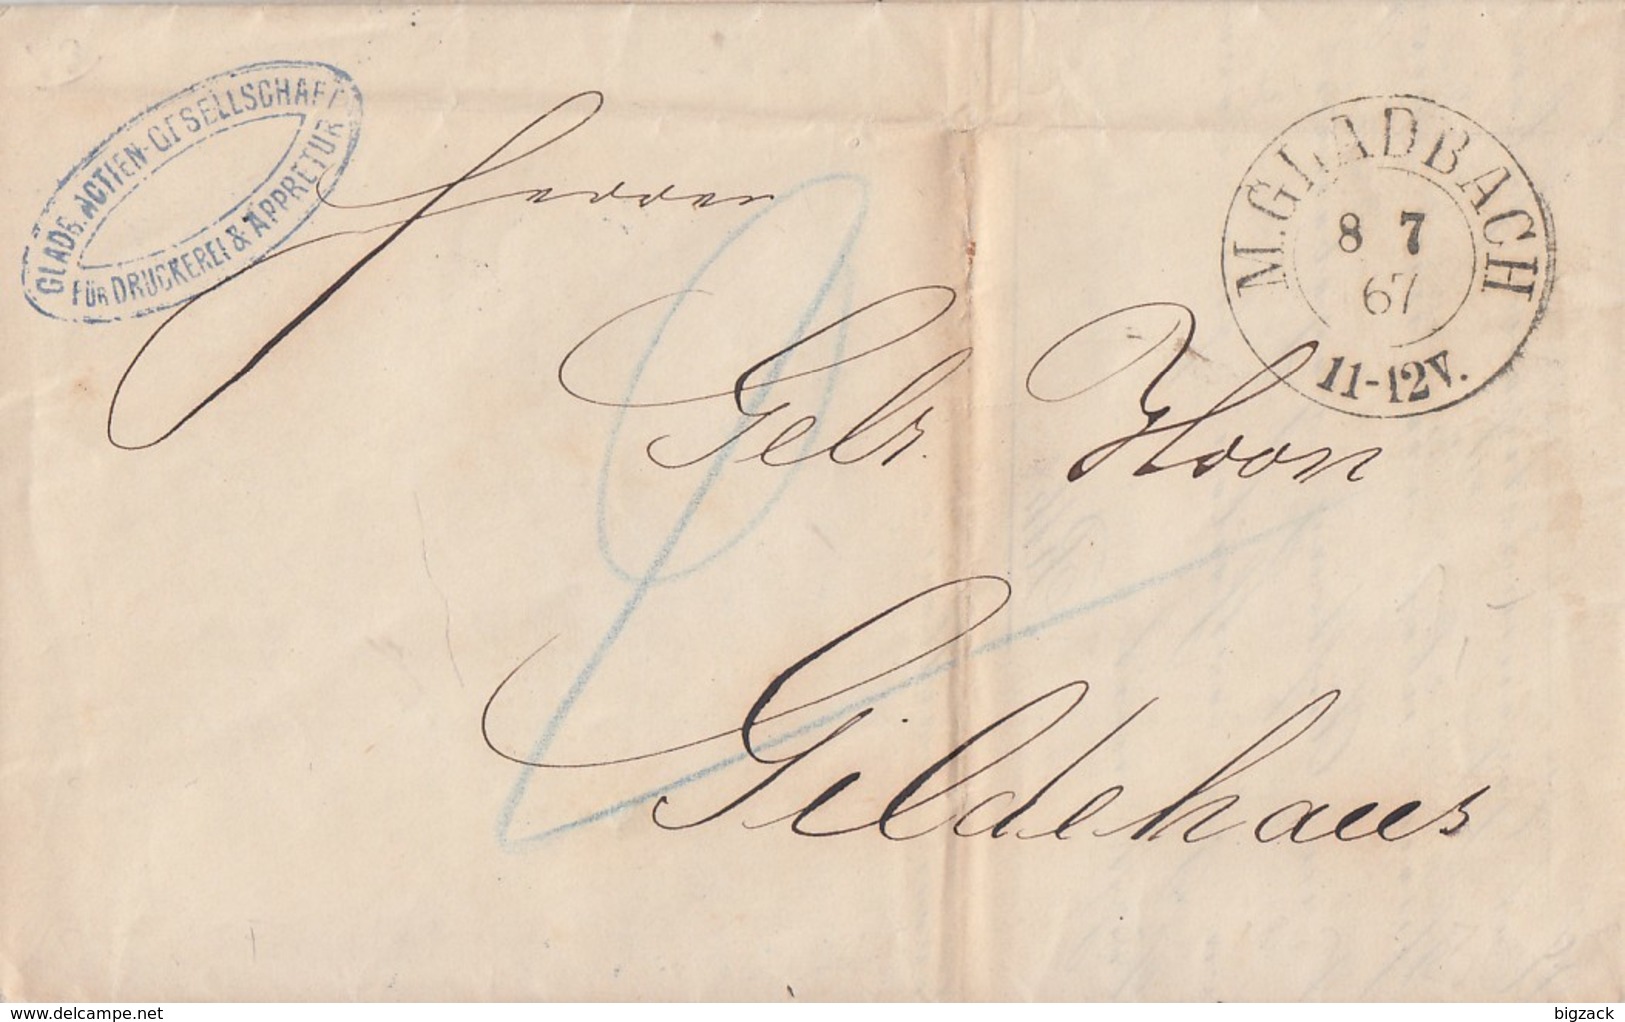 GLADB. ACTIEN-GESELLSCHAFT
FÜR DRUCKEREI & APPRETUR
M.GLADBACH
8 7
67
11-12V.
Herren
Gebr. Hoon
Gildehaus
delcampe.net
bigzack